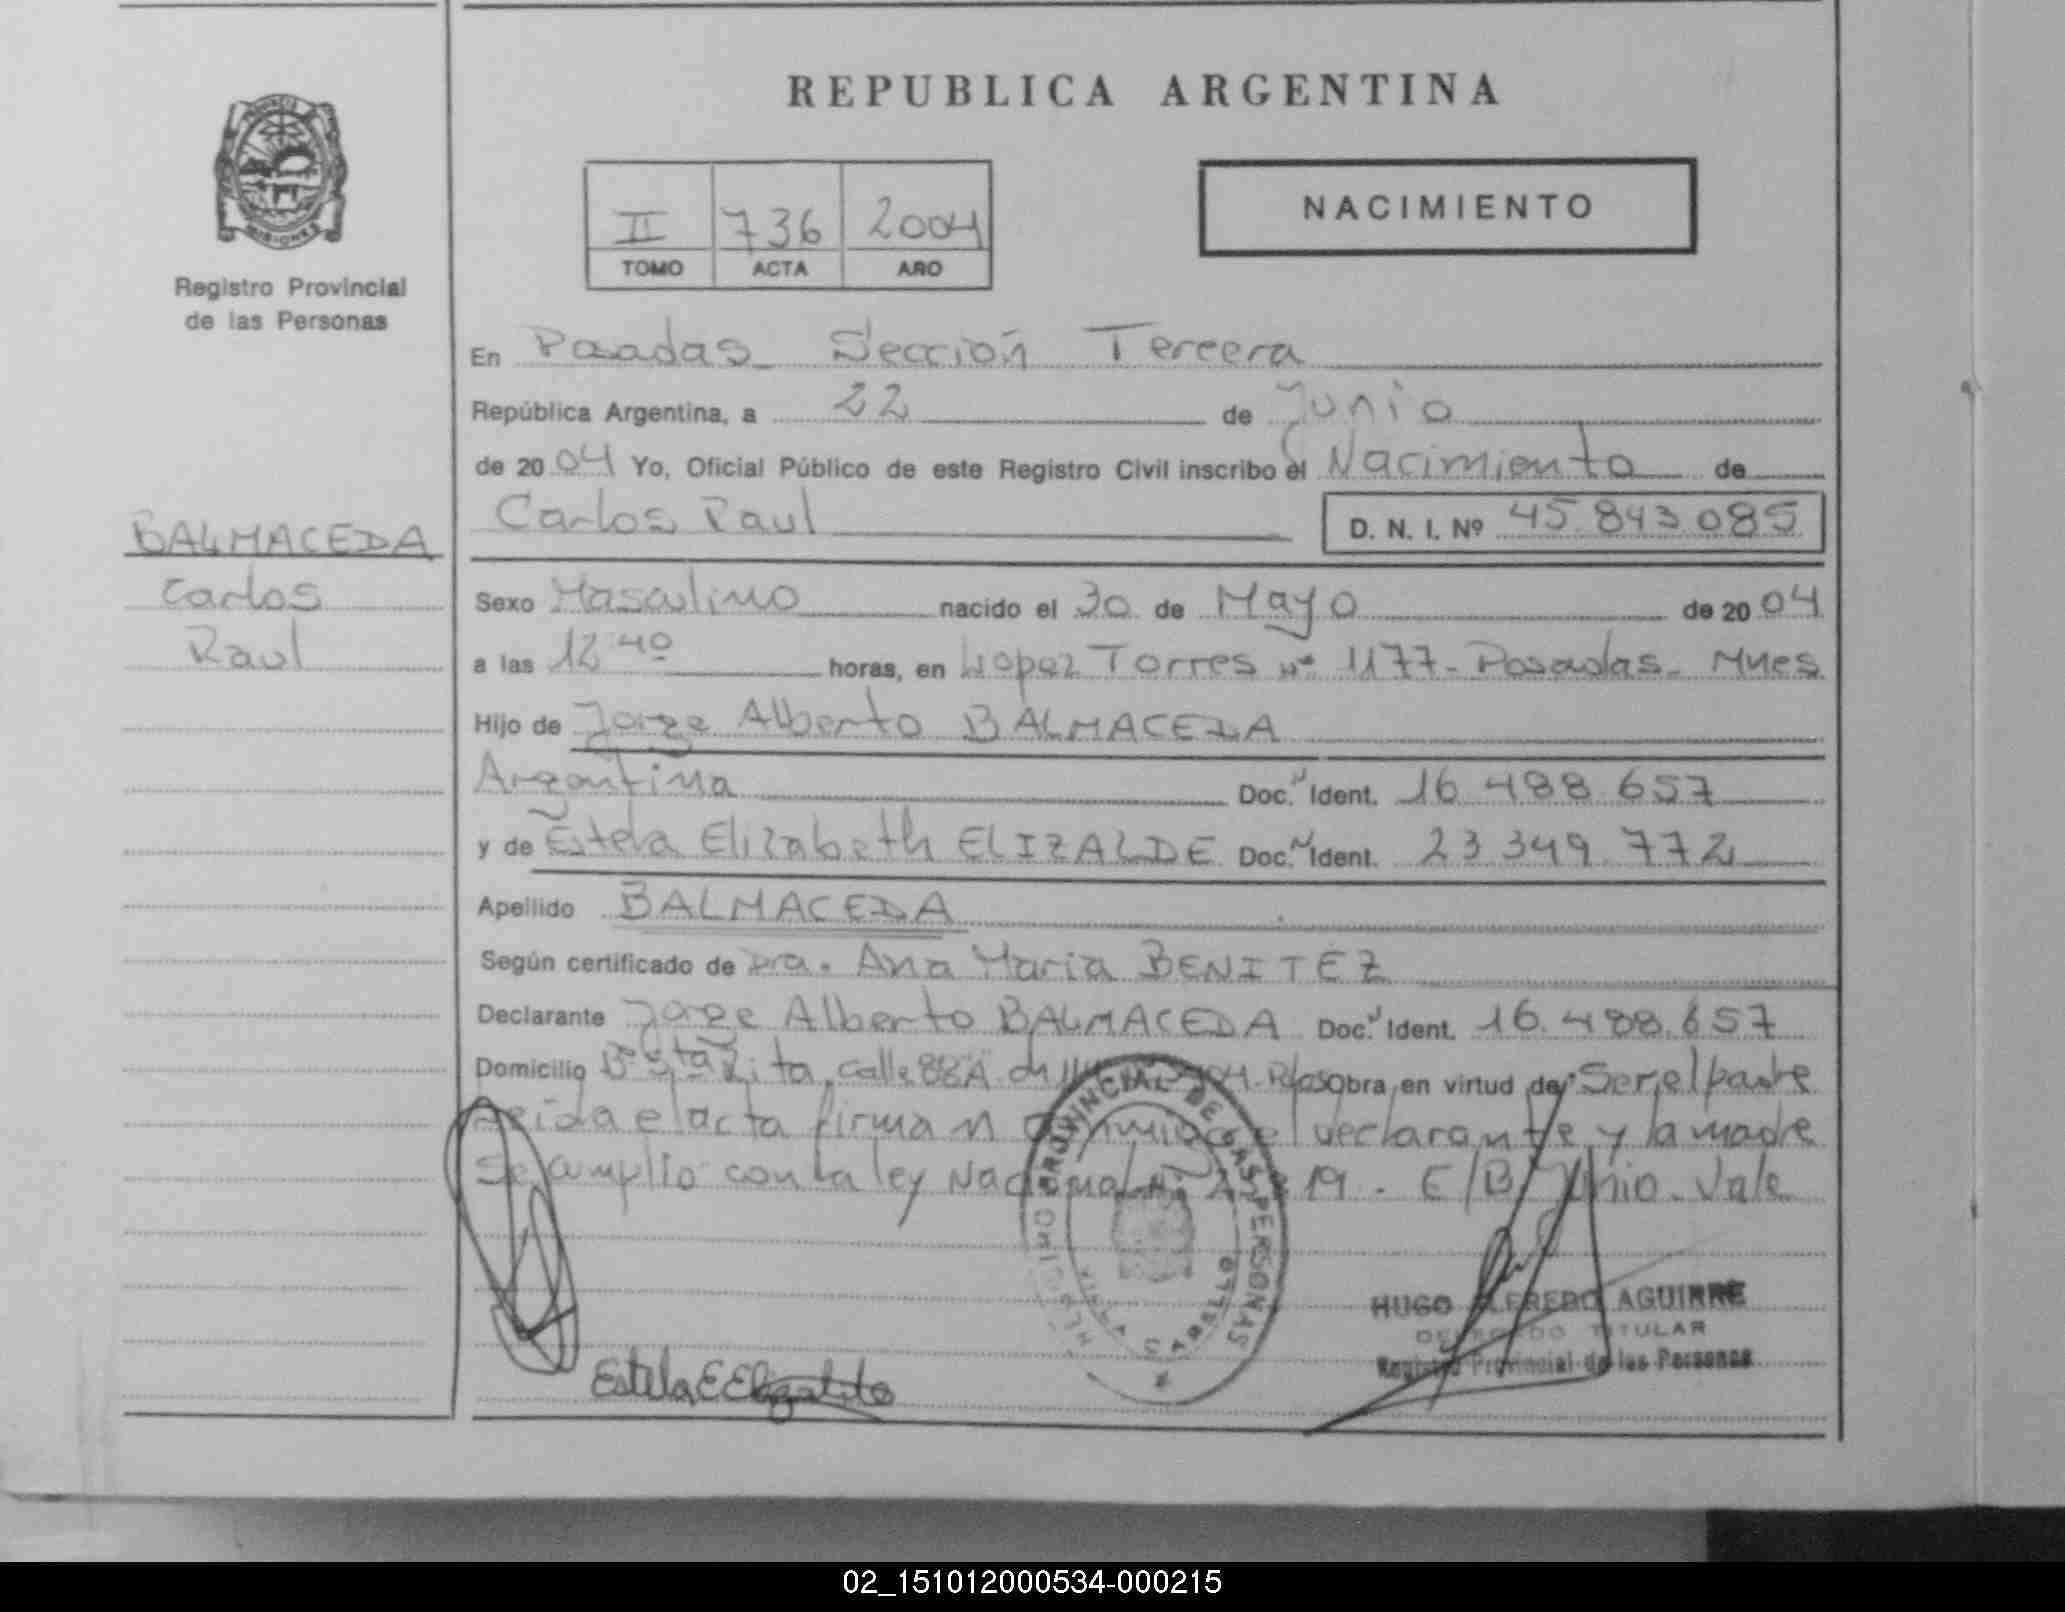 REPUBLICA ARGENTINA
MISIONES
Registro Provincial
de las Personas
NACIMIENTO
II 736 2004
TOMO ACTA AÑO
En Posadas Sección Tercera
República Argentina, a 22 de Junio
de 2004 Yo, Oficial Público de este Registro Civil inscribo el Nacimiento de
Carlos Raul D. N. I. Nº 45.843.085
BALMACEDA
Carlos
Raul
Sexo Masculino nacido el 30 de Mayo de 2004
a las 12 40 horas, en Lopez Torres nº 1177- Posadas- Mnes
Hijo de Jorge Alberto BALMACEDA
Argentina Doc. Ident. 16 488 657
y de Estela Elizabeth ELIZALDE Doc. Ident. 23 349 772
Apellido BALMACEDA
Según certificado de Dra. Ana Maria BENITEZ
Declarante Jorge Alberto BALMACEDA Doc. Ident. 16.488.657
Domicilio Bº Sta Rita, calle 88A obra en virtud de Ser el padre
Leida el acta firman el declarante y la madre
Se cumplio con la ley Nacional 19. E/B Junio. Vale
REGISTRO PROVINCIAL DE LAS PERSONAS
HUGO ALFREDO AGUIRRE
DELEGADO TITULAR
Registro Provincial de las Personas
Estela E
02_151012000534-000215